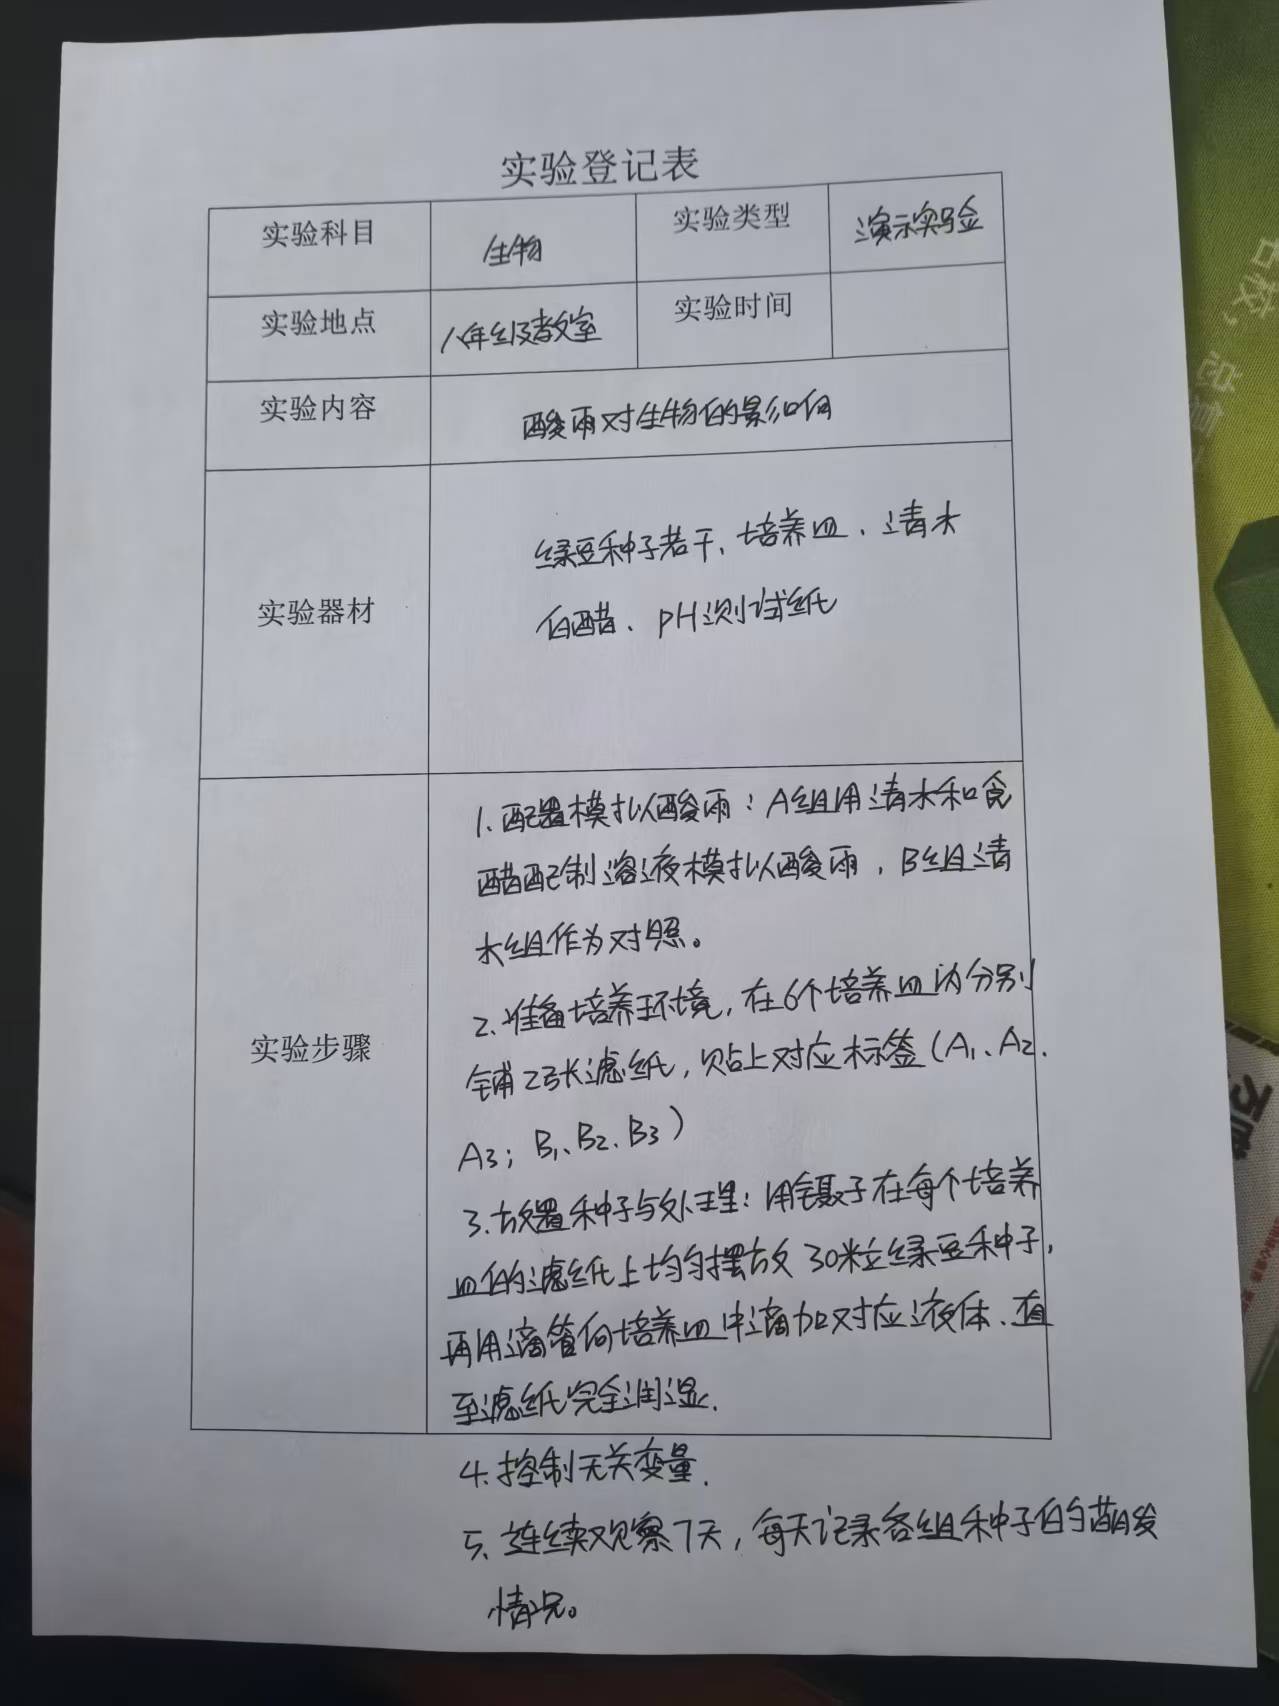 实验登记表
实验科目 生物 实验类型 演示实验
实验地点 八年级教室 实验时间
实验内容 酸雨对生物的影响
实验器材
绿豆种子若干、培养皿、清水
白醋、pH测试纸
实验步骤
1.配置模拟酸雨：A组用清水和食
醋配制溶液模拟酸雨，B组清
水组作为对照。
2.准备培养环境，在6个培养皿内分别
铺2张滤纸，贴上对应标签（A1、A2、
A3；B1、B2、B3）
3.放置种子与处理：用镊子在每个培养
皿的滤纸上均匀摆放30粒绿豆种子，
再用滴管向培养皿中滴加对应液体、直
至滤纸完全润湿.
4.控制无关变量.
5.连续观察7天，每天记录各组种子的萌发
情况。